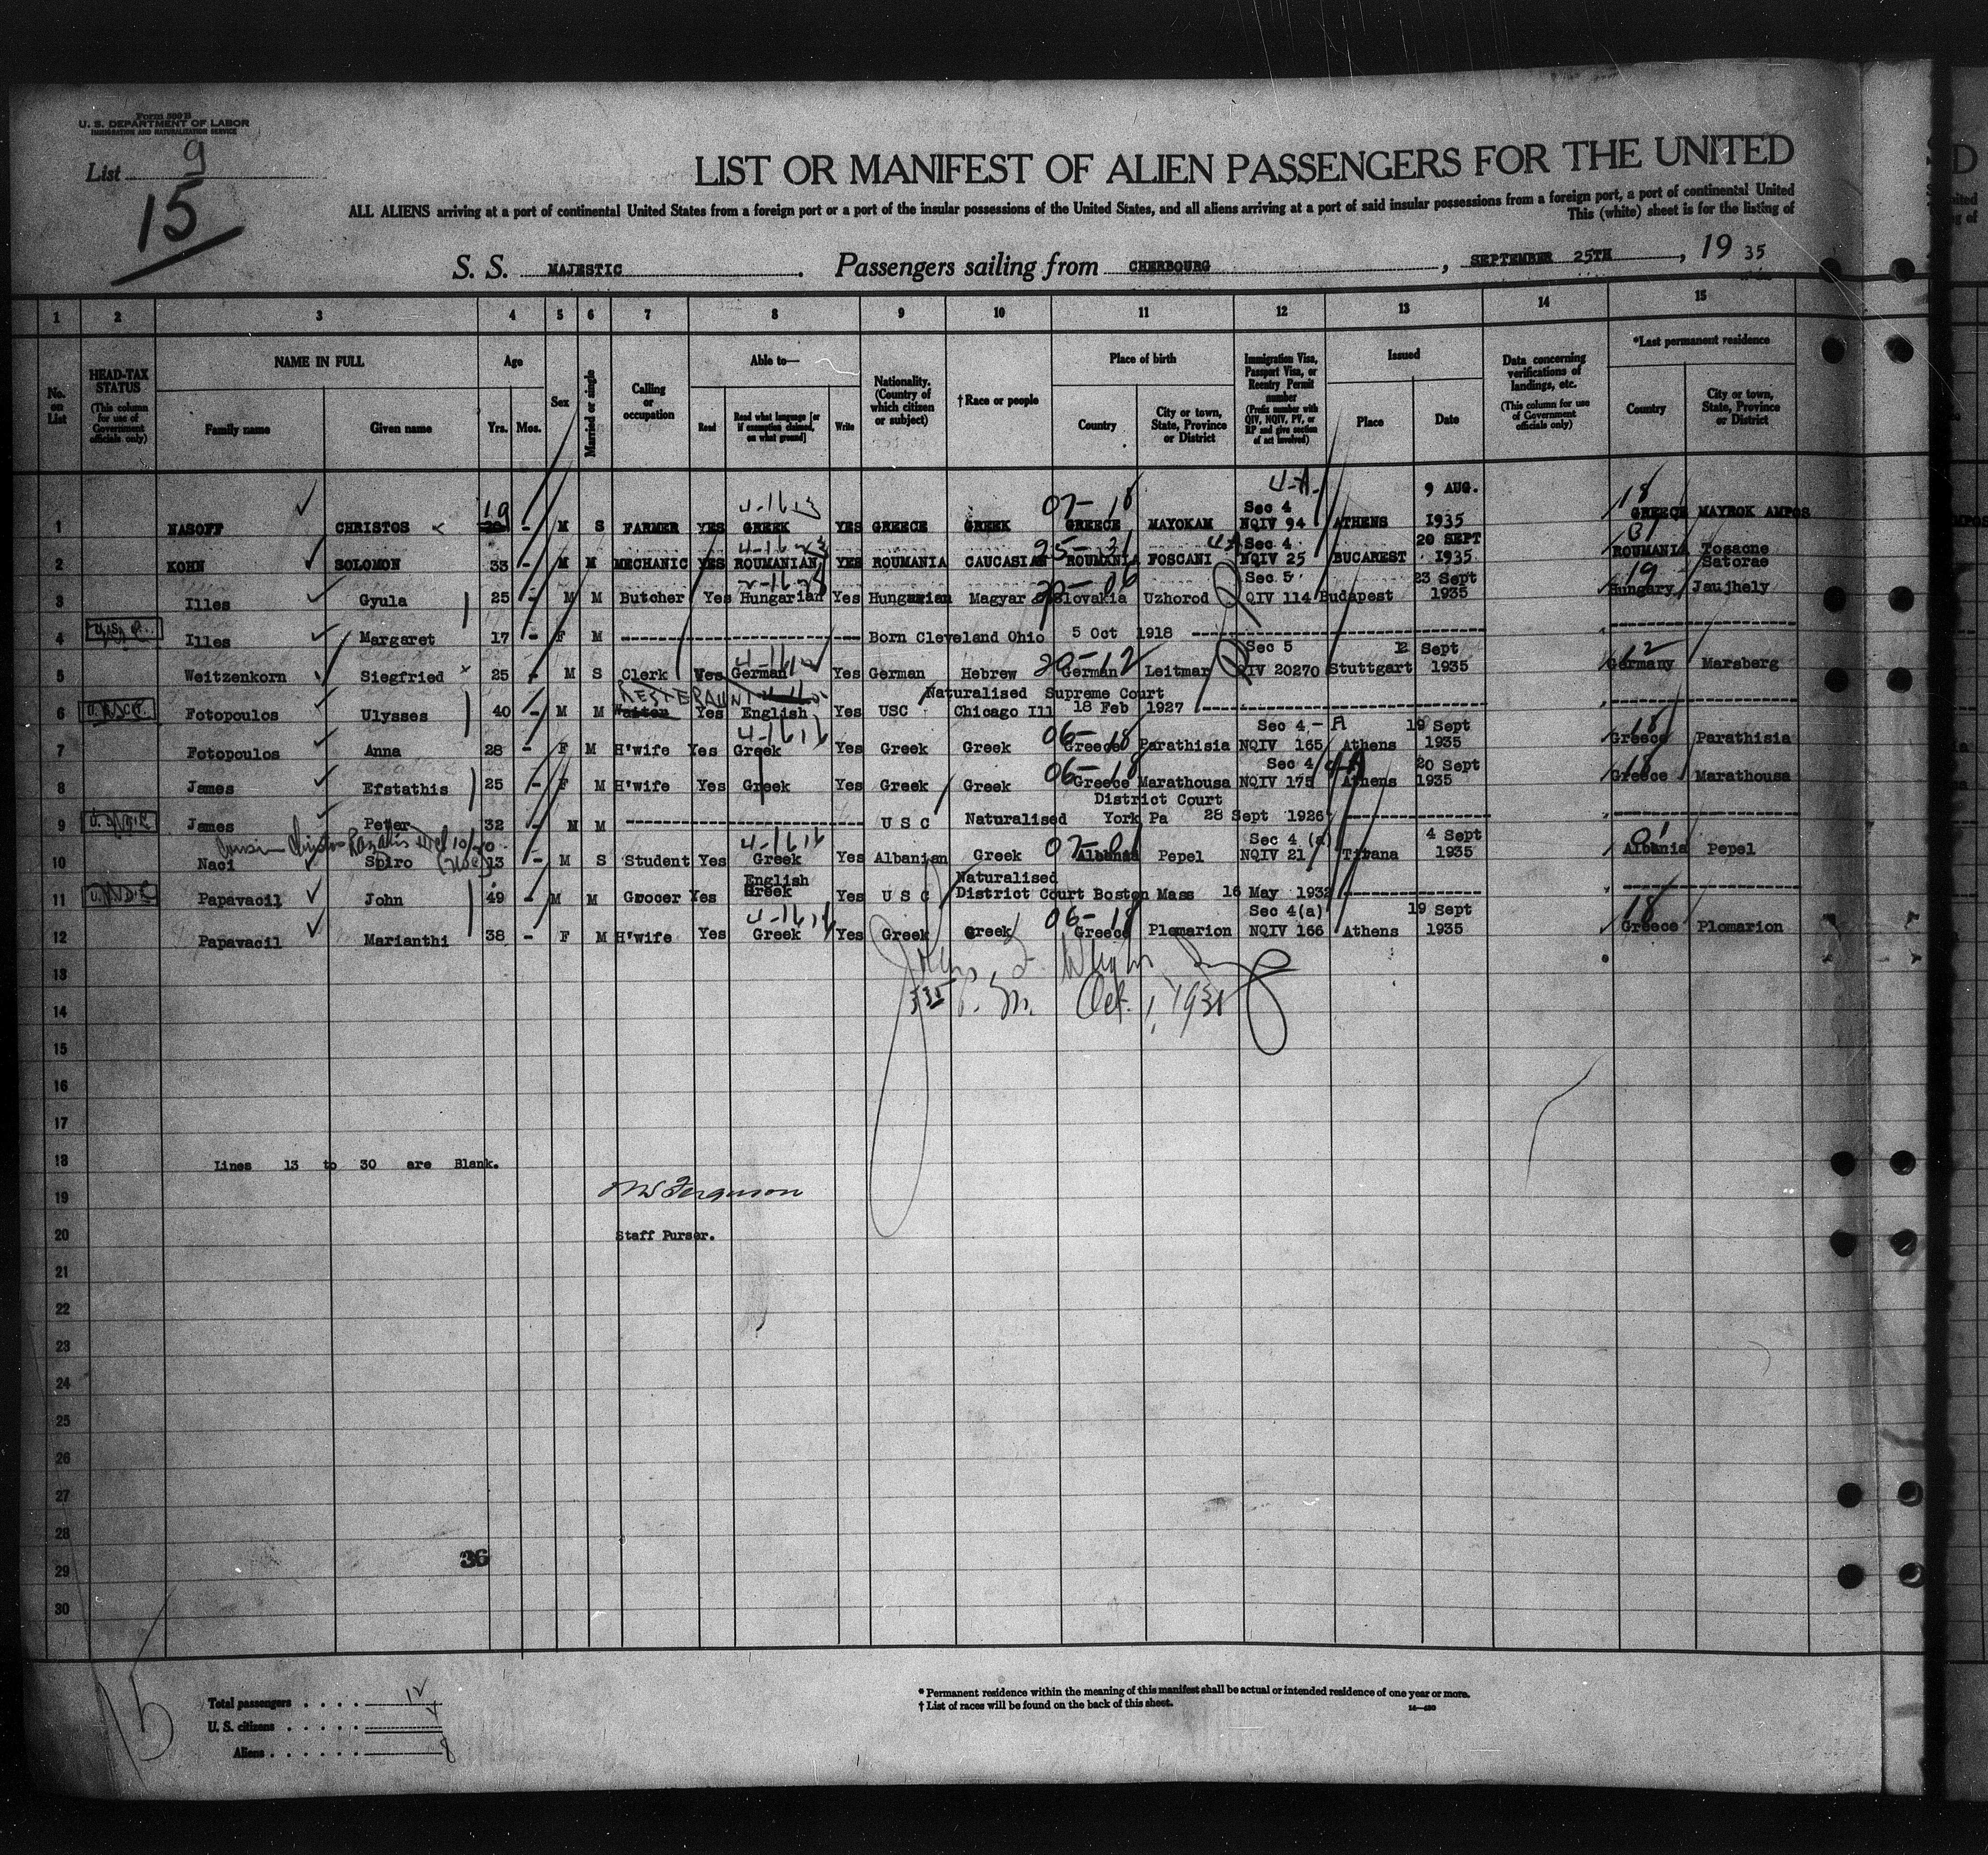 Form 500 B
U. S. DEPARTMENT OF LABOR
IMMIGRATION AND NATURALIZATION SERVICE
List 9
15
LIST OR MANIFEST OF ALIEN PASSENGERS FOR THE UNITED
ALL ALIENS arriving at a port of continental United States from a foreign port or a port of the insular possessions of the United States, and all aliens arriving at a port of said insular possessions from a foreign port, a port of continental United
This (white) sheet is for the listing of
S. S. MAJESTIC. Passengers sailing from CHERBOURG, SEPTEMBER 25TH, 19 35
1 2 3 4 5 6 7 8 9 10 11 12 13 14 15
No. on List
HEAD-TAX STATUS (This column for use of Government officials only)
NAME IN FULL
Family name Given name
Age
Yrs. Mos.
Sex
Married or single
Calling or occupation
Able to—
Read Read what language [or if exemption claimed, on what ground] Write
Nationality. (Country of which citizen or subject)
† Race or people
Place of birth
Country City or town, State, Province or District
Immigration Visa, Passport Visa, or Reentry Permit number (Prefix number with QIV, NQIV, PV, or RP and give section of act involved)
Issued
Place Date
Data concerning verifications of landings, etc. (This column for use of Government officials only)
*Last permanent residence
Country City or town, State, Province or District
19 4-1613 07-18 4-A. Sec 4 9 AUG. 18
1 NASOFF CHRISTOS - M S FARMER YES GREEK YES GREECE GREEK GREECE MAYOKAM NQIV 94 ATHENS 1935 GREECE MAYROK AMPOS
4-16 25-31 Sec 4 20 SEPT 31
2 KOHN SOLOMON 33 - M M MECHANIC YES ROUMANIAN YES ROUMANIA CAUCASIAN ROUMANIA FOSCANI NQIV 25 BUCAREST 1935 ROUMANIA Tosacne
Sec 5 23 Sept 19 Satorae
3 Illes Gyula 25 - M M Butcher Yes Hungarian Yes Hungarian Magyar Slovakia Uzhorod QIV 114 Budapest 1935 Hungary Jaujhely
4 Illes Margaret 17 - F M Born Cleveland Ohio 5 Oct 1918
Sec 5 12 Sept 12
5 Weitzenkorn Siegfried 25 - M S Clerk Yes German Yes German Hebrew German Leitmar QIV 20270 Stuttgart 1935 Germany Marsberg
Naturalised Supreme Court
6 Fotopoulos Ulysses 40 - M M Yes English Yes USC Chicago Ill 18 Feb 1927
4-1616 06-18 Sec 4-A 19 Sept 18
7 Fotopoulos Anna 28 - F M H'wife Yes Greek Yes Greek Greek Greece Parathisia NQIV 165 Athens 1935 Greece Parathisia
06-18 Sec 4 20 Sept 18
8 James Efstathis 25 - F M H'wife Yes Greek Yes Greek Greek Greece Marathousa NQIV 175 Athens 1935 Greece Marathousa
District Court
9 James Peter 32 - M M U S C Naturalised York Pa 28 Sept 1926
4-1616 07-01 Sec 4 (a) 4 Sept 01
10 Naci Spiro 13 - M S Student Yes Greek Yes Albanian Greek Albania Pepel NQIV 21 Tirana 1935 Albania Pepel
English Naturalised
11 Papavacil John 49 - M M Grocer Yes Greek Yes U S C District Court Boston Mass 16 May 1932
4-1616 06-18 Sec 4(a) 19 Sept 18
12 Papavacil Marianthi 38 - F M H'wife Yes Greek Yes Greek Greek Greece Plomarion NQIV 166 Athens 1935 Greece Plomarion
13
335 P. M. Oct. 1, 1935
14
15
16
17
18 Lines 13 to 30 are Blank.
19 Ferguson
20 Staff Purser.
21
22
23
24
25
26
27
28
36
29
30
15
Total passengers . . . . 12
U. S. citizens . . . . . 4
Aliens . . . . . . 8
* Permanent residence within the meaning of this manifest shall be actual or intended residence of one year or more.
† List of races will be found on the back of this sheet.